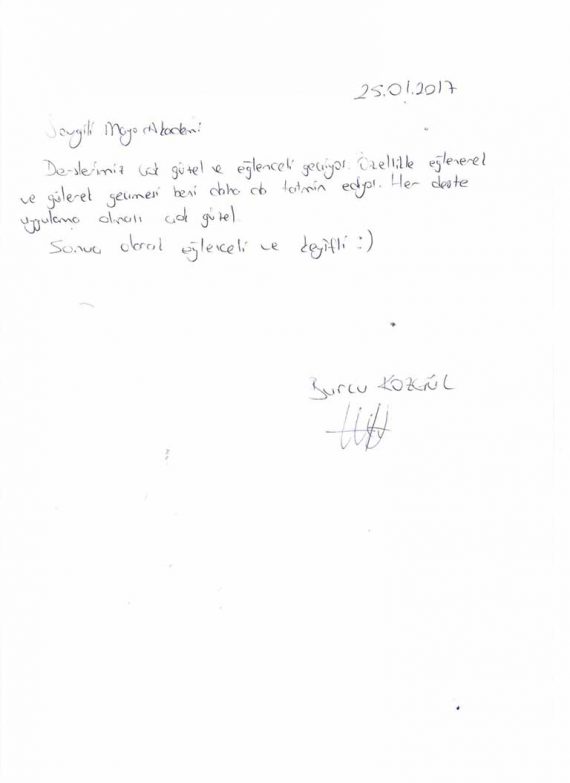 25.01.2017
Sevgili Mayo Akademi
Derslerimiz çok güzel ve eğlenceli geçiyor. Özellikle eğlenerek
ve gülerek geçmesi beni daha da tatmin ediyor. Her derste
uygulama olması çok güzel.
Sonuç olarak eğlenceli ve keyifli :)
Burcu